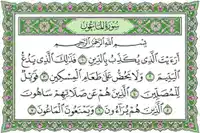 سُورَةُ الْمَاعُونِ
بِسْمِ اللَّهِ الرَّحْمَٰنِ الرَّحِيمِ
أَرَءَيْتَ الَّذِي يُكَذِّبُ بِالدِّينِ ۝ فَذَٰلِكَ الَّذِي يَدُعُّ
الْيَتِيمَ ۝ وَلَا يَحُضُّ عَلَىٰ طَعَامِ الْمِسْكِينِ ۝ فَوَيْلٌ
لِّلْمُصَلِّينَ ۝ الَّذِينَ هُمْ عَن صَلَاتِهِمْ سَاهُونَ ۝
الَّذِينَ هُمْ يُرَاءُونَ ۝ وَيَمْنَعُونَ الْمَاعُونَ ۝